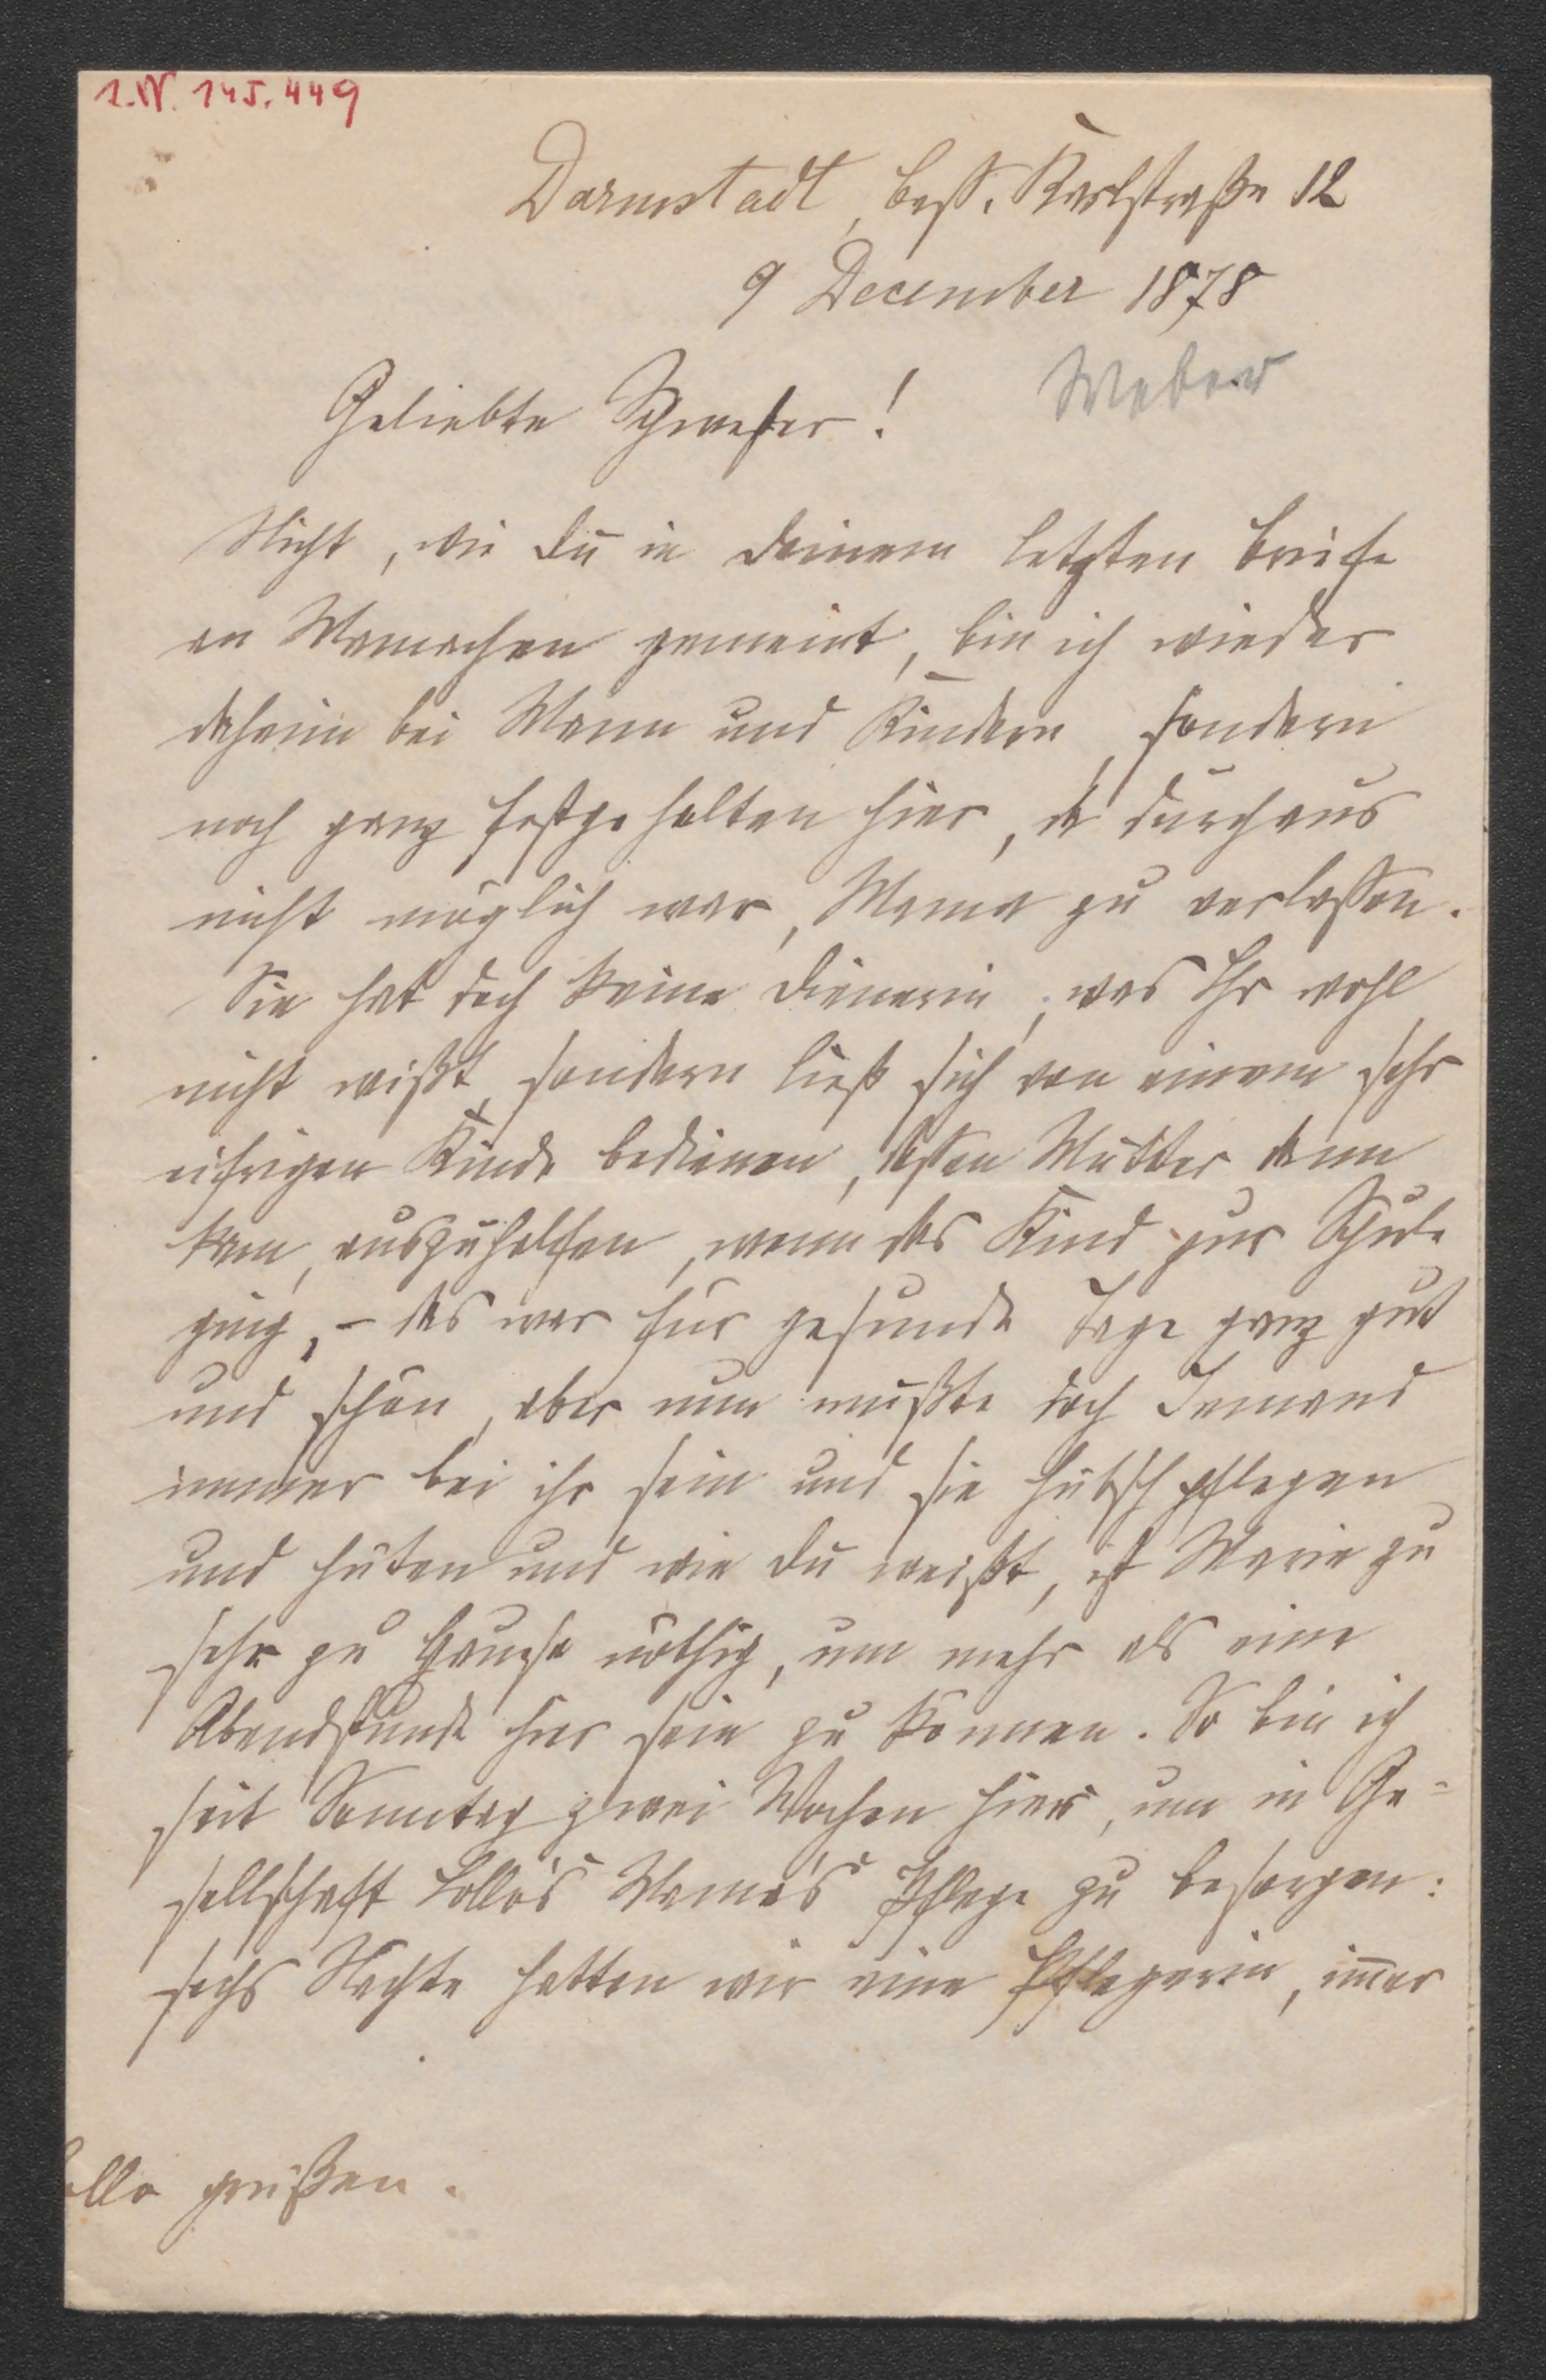 I.N. 145.449
Darmstadt, Bess. Karlstraße 12
9 December 1878
Weber
Geliebte Schwester!
Nicht, wie Du in Deinem letzten Briefe
an Mamachen gemeint, bin ich wieder
daheim bei Mann und Kindern, sondern
noch ganz festgehalten hier, da durchaus
nicht möglich war, Mama zu verlassen.
Sie hat doch keine Dienerin, was Ihr wohl
nicht wißt, sondern ließ sich von einem sehr
eifrigen Kinde bedienen, dessen Mutter dann
kam, auszuhelfen, wenn das Kind zur Schule
ging, – das war für gesunde Tage ganz gut
und schön, aber nun mußte doch Jemand
immer bei ihr sein und sie hübsch pflegen
und hüten und wie Du weißt, ist Marie zu
sehr zu Hause nöthig, um mehr als eine
Abendstunde hier sein zu können. So bin ich
seit Sonntag zwei Wochen hier, um in Ge-
sellschaft Lollo's Mama's Pflege zu besorgen:
sechs Nächte hatten wir eine Pflegerin, im̅er
ollo grüßen.